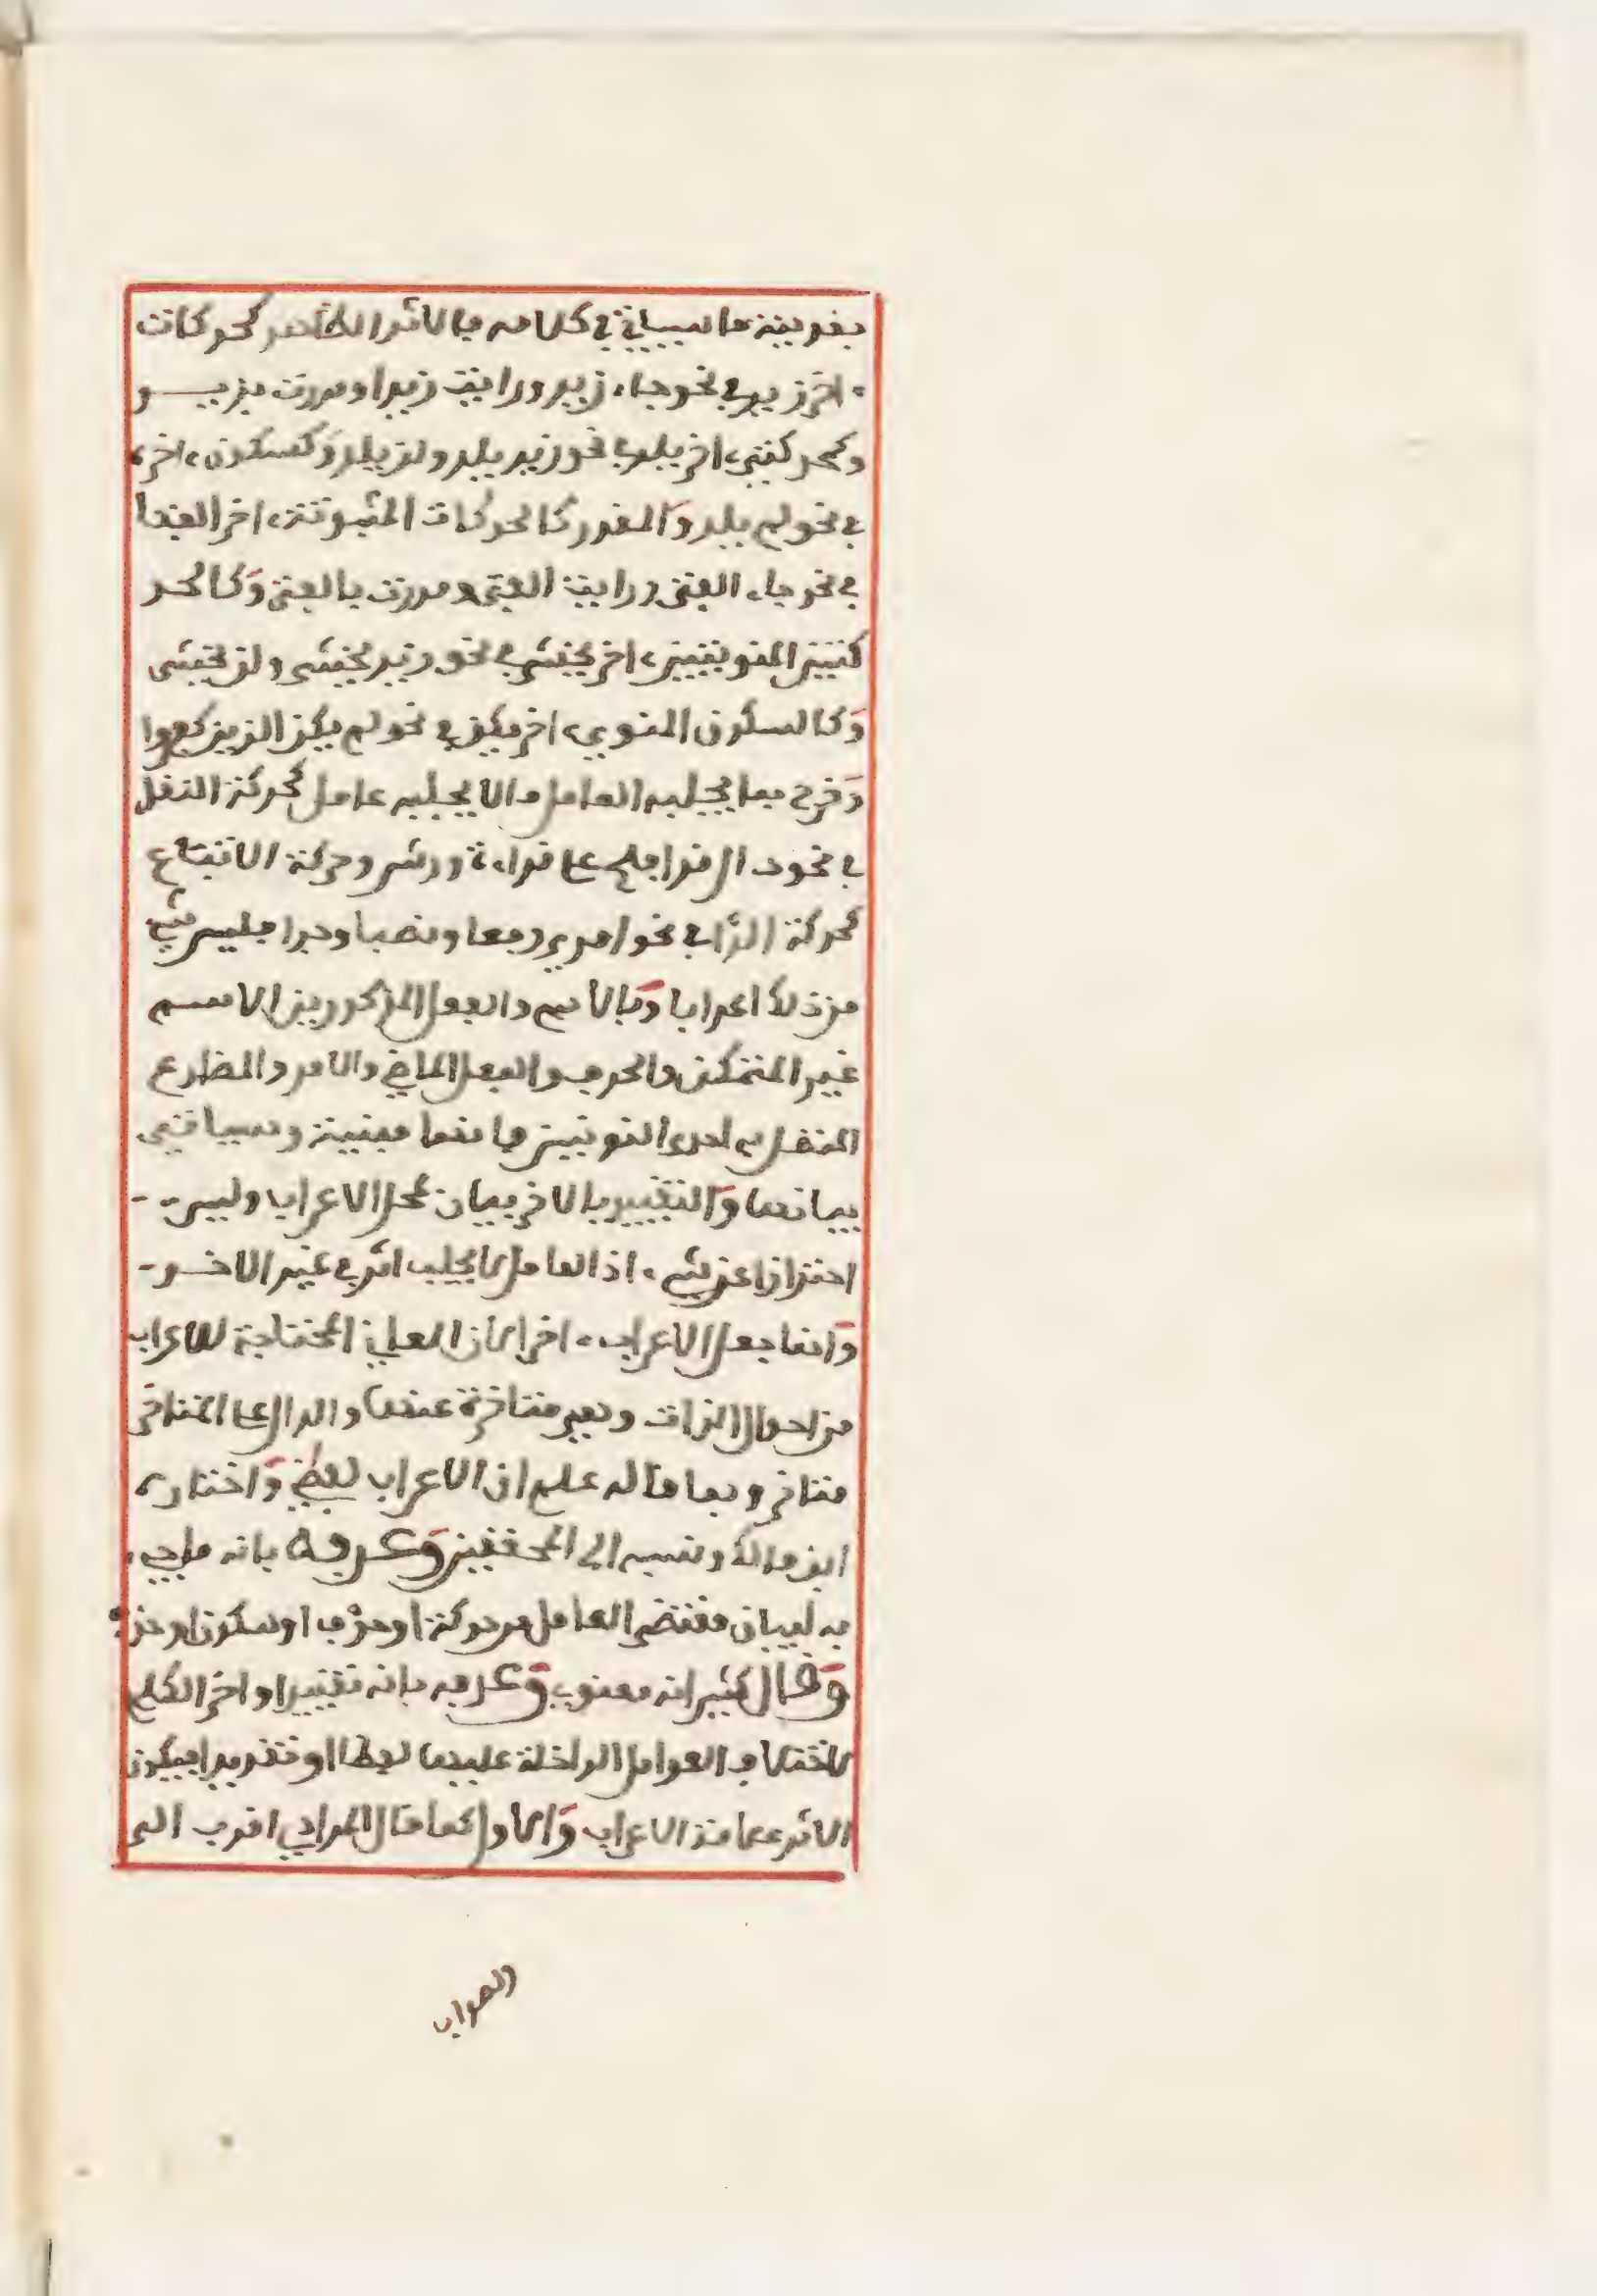 بقرينة ما سياتي في كلامه فالاثر الظاهر كحركات
ءاخر زيد في نحو جاء زيد ورايت زيدا ومررت بزيد
وكحركتي ءاخر يلد في نحو زيد يلد ولن يلد وكسكون ءاخره
في نحو لم يلد والمقدر كالحركات المنوية ءاخر الفتى
في نحو جاء الفتى ورايت الفتى ومررت بالفتى وكالحر
كتين المنويتين ءاخر يخشى في نحو زيد يخشى ولن يخشى
وكالسكون المنوي ءاخر يكن في نحو لم يكن الذين كفروا
وخرج بما يجلبه العامل ما لا يجلبه عامل كحركة النقل
في نحو قد افلح على قراءة ورش وحركة الاتباع
كحركة الرا في نحو امرئ رفعا ونصبا وجرا فليس شيء
من ذلك اعرابا وبالاسم والفعل المذكورين الاسم
غير المتمكن والحرف والفعل الماضي والامر والمضارع
المتصل به احدى النونين فانها مبنية وسياتي
بيانها والتقييد بالاخر بيان لمحل الاعراب وليس
احترازا عن شيء اذ العامل لا يجلب اثر في غير الاخر
وانما جعل الاعراب ءاخر لان المعاني المحتاجة للاعراب
من احوال الذات وهي متاخرة عنها والدال على المتاخر
متاخر وبما قاله علم ان الاعراب لفظي واختاره
ابن مالك ونسبه الى المحققين وعرفه بانه ما جيء
به لبيان مقتضى العامل من حركة او حرف او سكون او حذف
وقال كثير انه معنوي وعرفه بانه تغيير اواخر الكلم
لاختلاف العوامل الداخلة عليها لفظا او تقديرا فيكون
الاثر علامة الاعراب والاول كما قال المرادي اقرب الى
الصواب